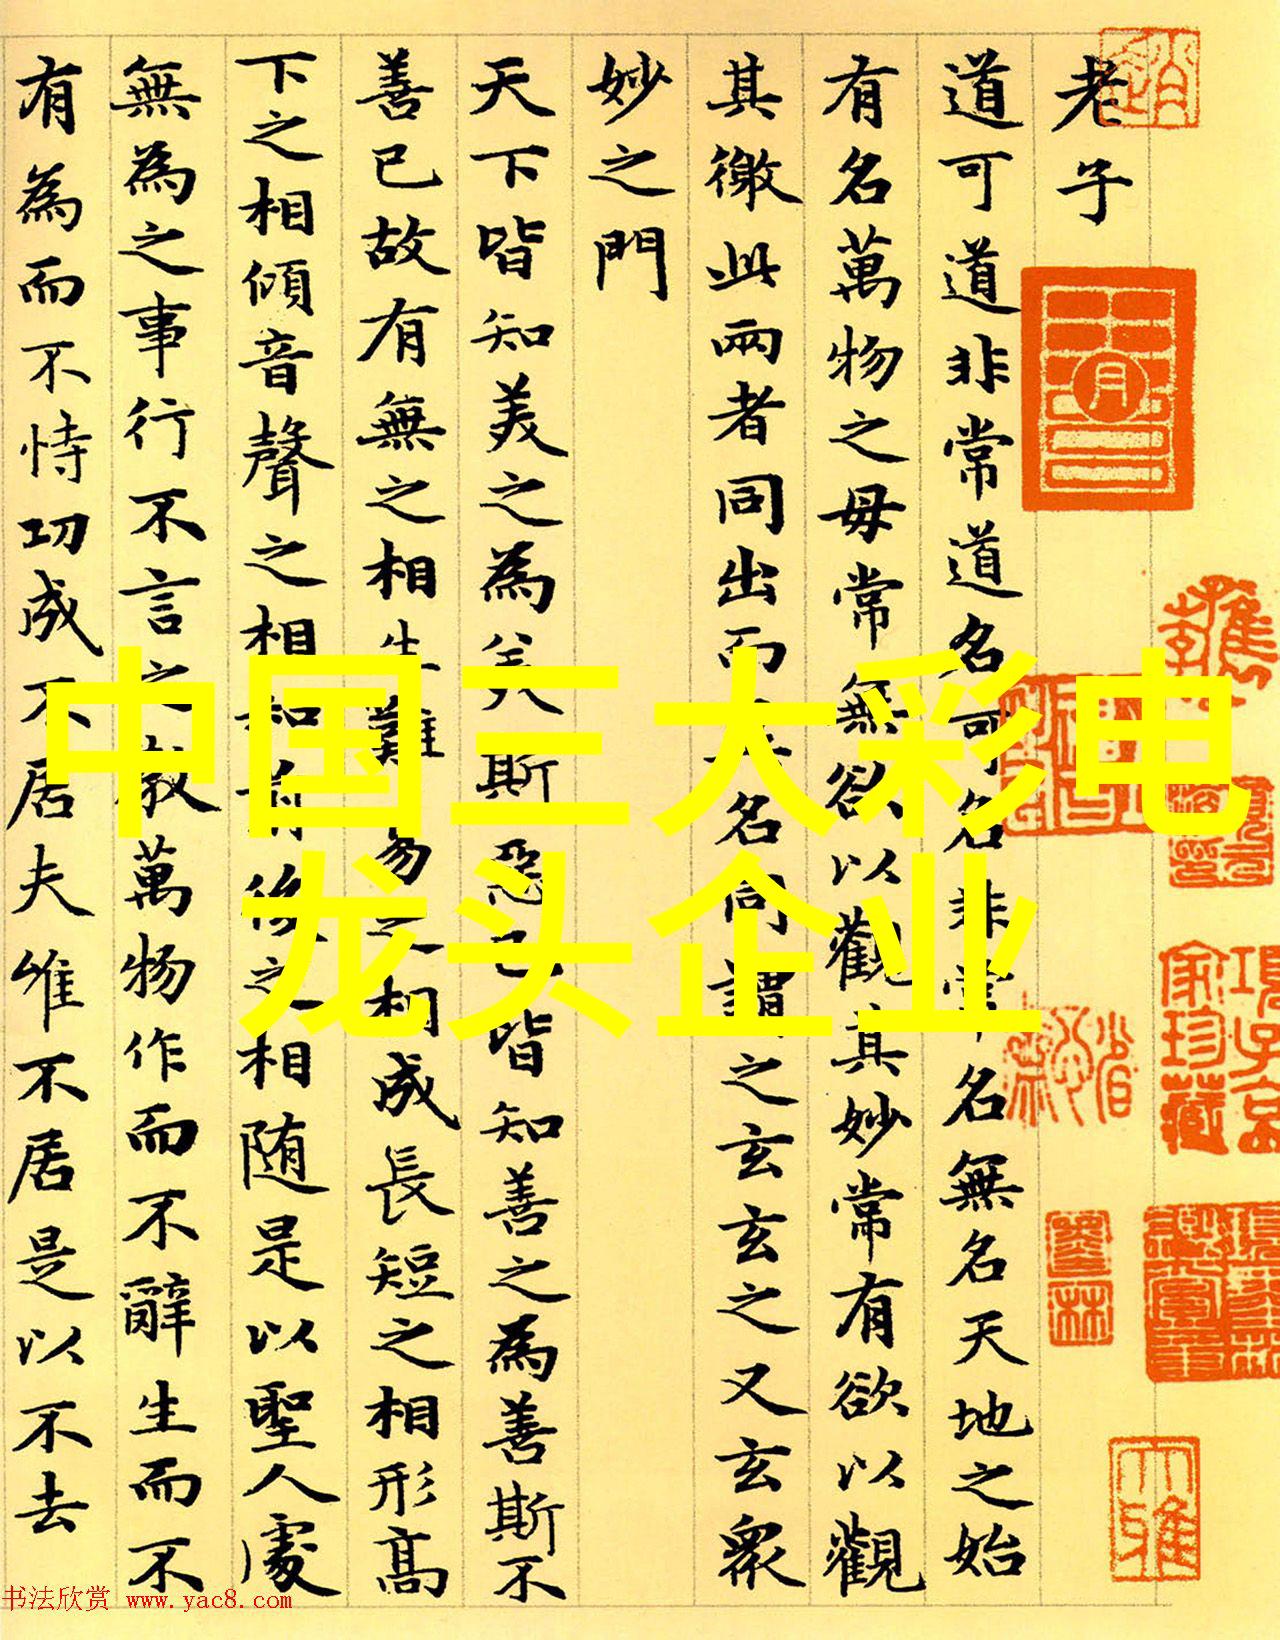 老子
道可道非常道名可名非常名無名天地之始
有名萬物之母常無欲以觀其妙常有欲以觀
其徼此兩者同出而名同謂之玄玄之又玄衆
妙之門
天下皆知美之為美斯惡已皆知善之為善斯不
善已故有無之相生難易之相成長短之相形高
下之相傾音聲之相和前後之相随是以聖人處
無為之事行不言之教萬物作而不辭生而不
有為而不恃功成不居夫唯不居是以不去
中国三大彩电
龙头企业
項子京
家珍藏
大雅
书法欣赏 www.yac8.com